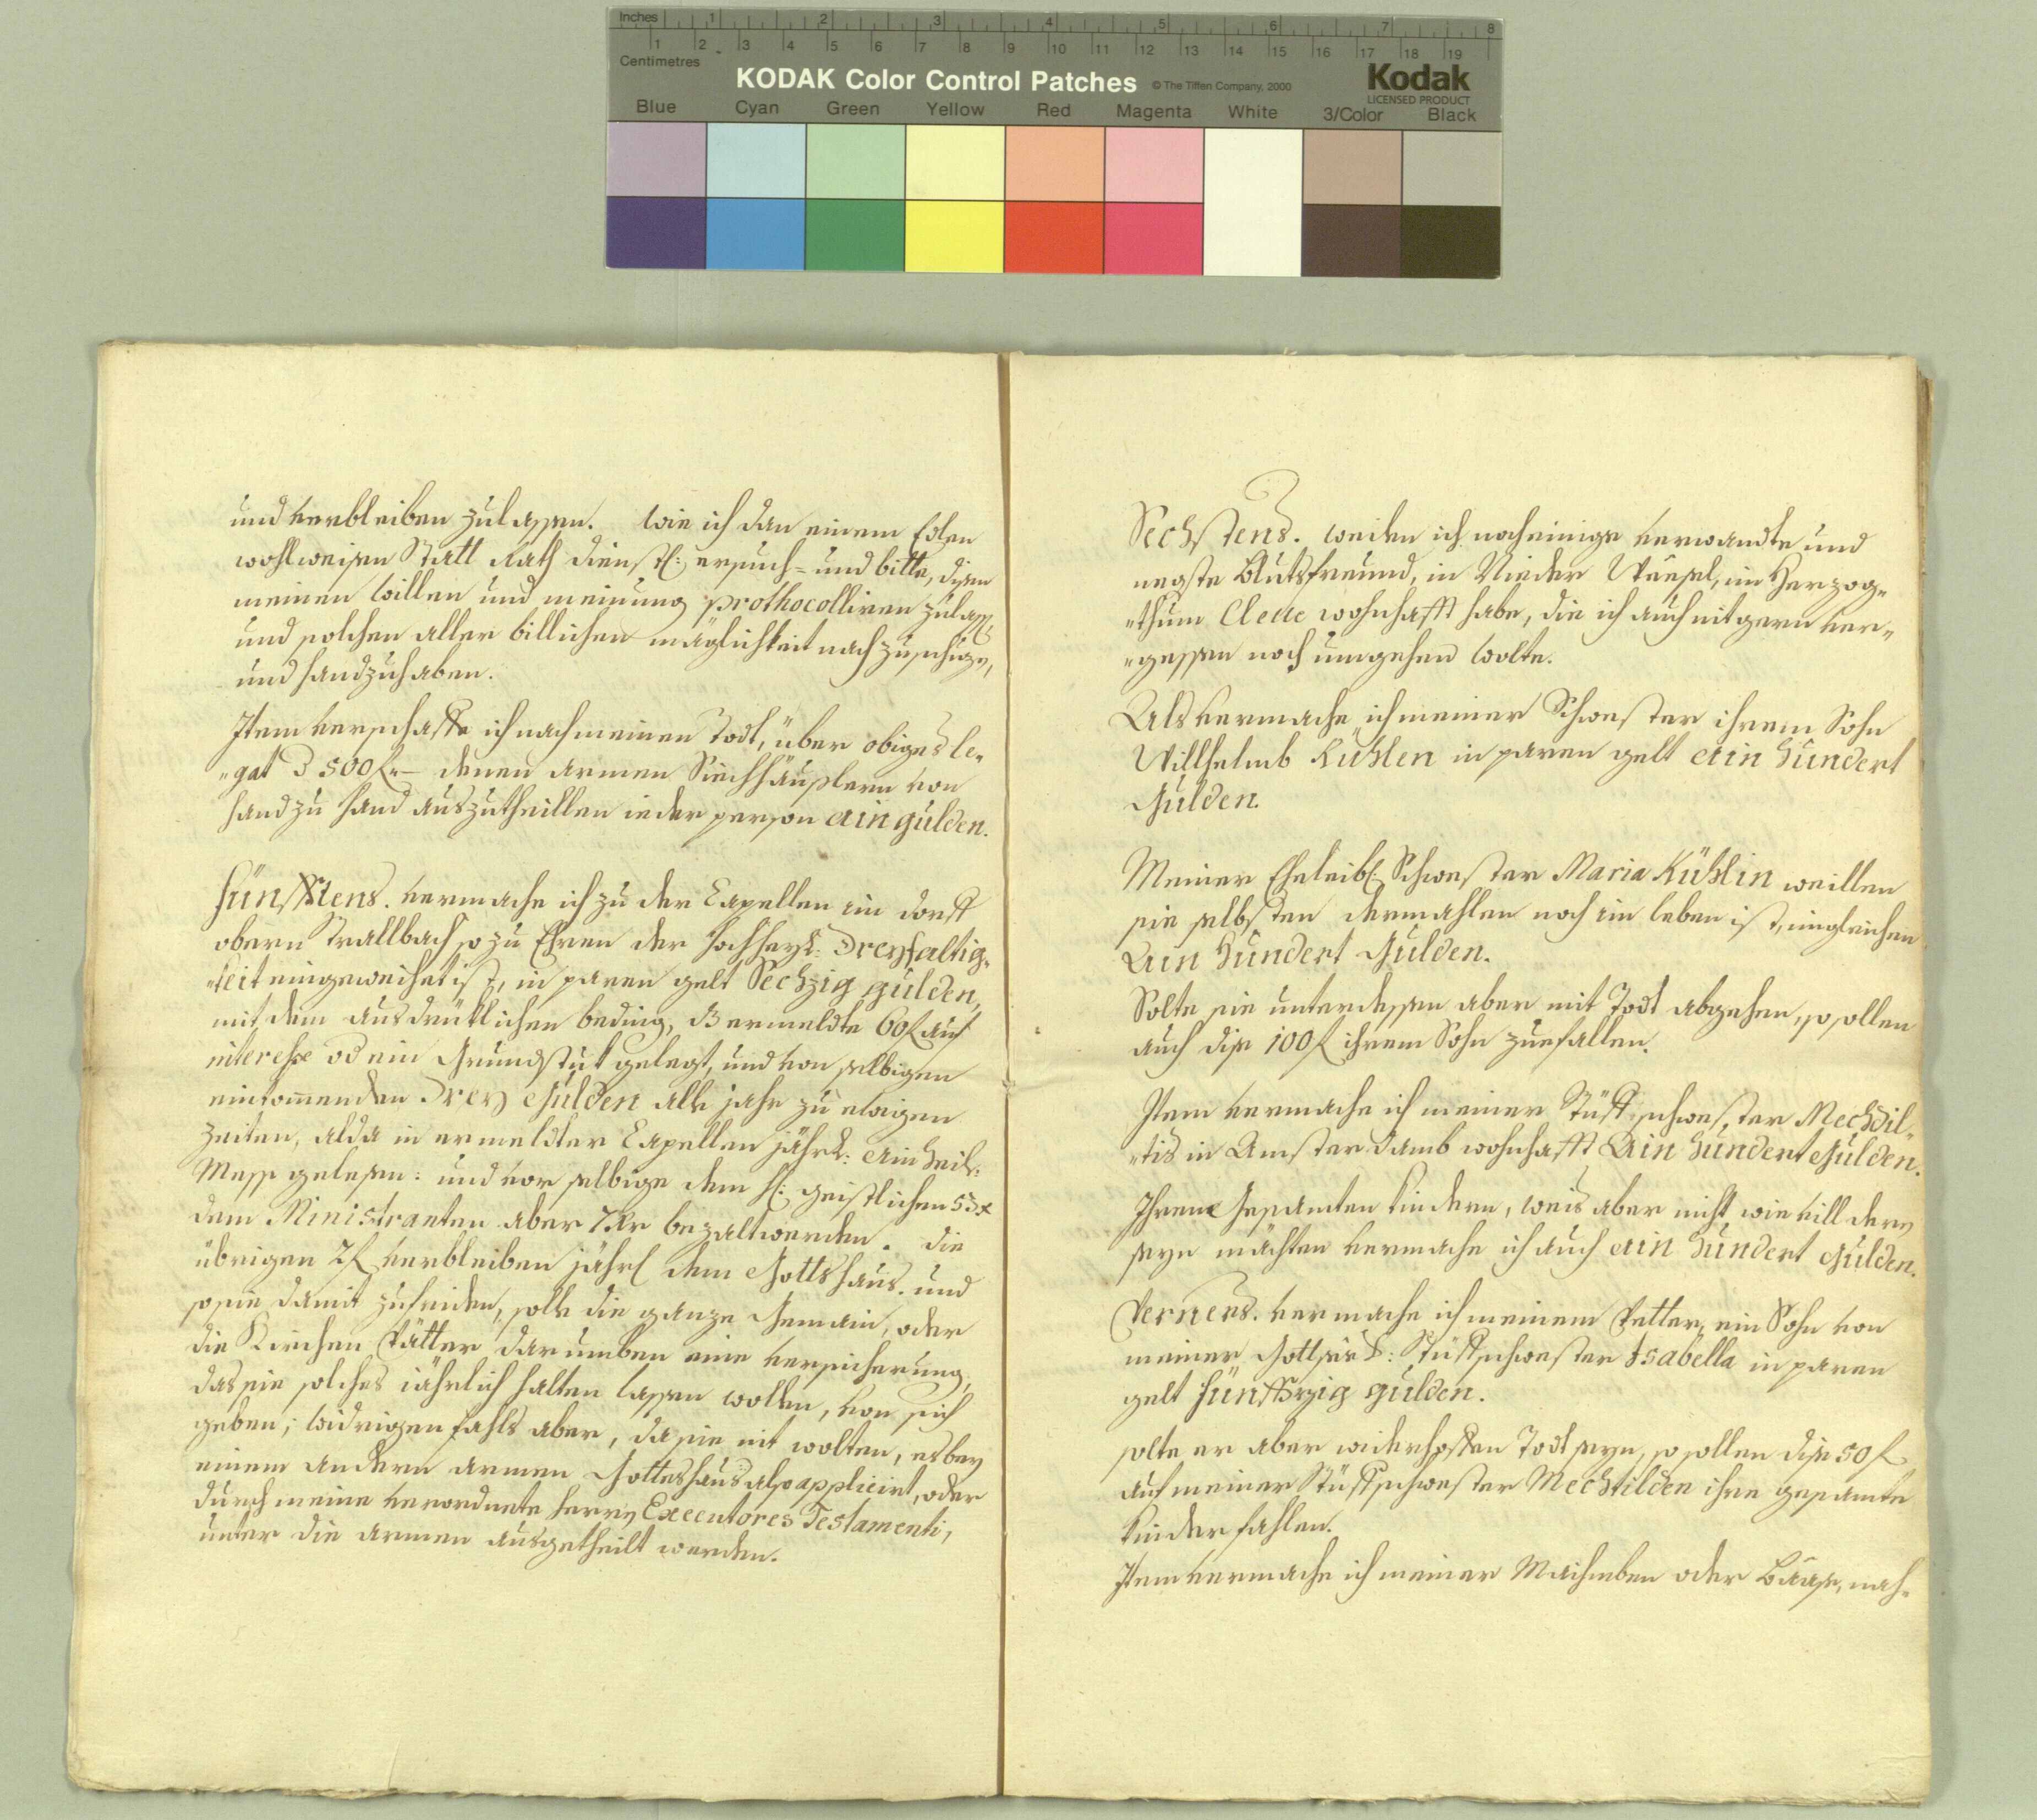 Inches 1 2 3 4 5 6 7 8
Centimetres 1 2 3 4 5 6 7 8 9 10 11 12 13 14 15 16 17 18 19
KODAK Color Control Patches © The Tiffen Company, 2000 Kodak
LICENSED PRODUCT
Blue Cyan Green Yellow Red Magenta White 3/Color Black
und verbleiben zulassen. Wie ich dan einem Edlen
wohlweisen Statt Rath dienstl: ersuch= und bitte, disen
meinen Willen und meinung prothocolliren zulass:
und solchen aller billichen möglichkeit nach zuschüzen,
und handzuhaben.
Item verschaffe ich nach meinen Todt, über obiges le„
„gat 3500f.– denen armen Siechhäuslern von
hand zu hand auszutheillen ieder person ain gulden.
fünfftens. vermache ich zu der Capellen im dorff
obern Trallbach so zu Ehren der hochheyl: Dreyfaltig„
„keit eingeweihet ist, in paren gelt Sechzig gulden,
mit dem ausdrüklichen beding, ermeldte 60f auf
interesse od ein Grundstuk gelegt, und von selbigen
einkommenden Drey Gulden alle jahr zu ewigen
zeiten, alda in ermeldter Capellen jährl: ain heil:
Mess gelesen: und vor selbige dem h: geistlichen 53x
dem Ministranten aber 7Xr bezalt werden. die
übrigen 2f verbleiben jährl dem Gottshaus. und
so sie damit zufriden, solle die ganze Gemain, oder
die Kirchen Vätter darumben eine versicherung,
das sie solches iährlich halten lassen wollen, von sich
geben; widrigenfahls aber, da sie nit wolten, es bey
einem andern armen Gotteshaus also applicirt, oder
durch meine verordnete herrn Executores Testamenti,
unter die armen ausgetheilt werden.
Sechstens. weilen ich noch einige verwandte und
negste Blutsfreund, in Nieder Wesel, im Herzog„
„thum Cleve wohnhafft habe, die ich auch nit gern ver„
„gessen noch umgehen wolte.
Als vermache ich meiner Schwester ihrem Sohn
Willhelmb Kühlen in paren gelt ain hundert
Gulden.
Meiner Eheleibl: Schwester Maria Kühlin weillen
sie selbsten dermahlen noch im leben ist, ingleichen
Ain hundert Gulden.
Solte sie unterdessen aber mit Todt abgehen, so sollen
auch dise 100f ihrem Sohn zuefallen.
Item vermache ich meiner Stüffschwester Mechdil„
„tis in Amsterdamb wohnhafft Ain hundert Gulden.
Ihren gesamten kindern, weis aber nicht wie vill dern
seyn möchten vermache ich auch ain hundert Gulden.
Ferners. vermache ich meinem Vetter, ein Sohn von
meiner Gottseel: Stüffschwester Isabella in paren
gelt fünffzig gulden.
solte er aber widerhoffen Todt seyn, so sollen dise 50f
auf meiner Stüffschwester Mechtilden ihre gesamte
kinder fahlen.
Item vermache ich meiner Maihmben oder Baase, nah„